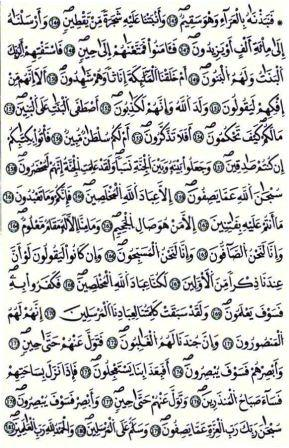 ۞ فَنَبَذْنَٰهُ بِٱلْعَرَآءِ وَهُوَ سَقِيمٌ ١٤٥ وَأَنۢبَتْنَا عَلَيْهِ شَجَرَةً مِّن يَقْطِينٍ ١٤٦ وَأَرْسَلْنَٰهُ
إِلَىٰ مِا۟ئَةِ أَلْفٍ أَوْ يَزِيدُونَ ١٤٧ فَـَٔامَنُوا۟ فَمَتَّعْنَٰهُمْ إِلَىٰ حِينٍ ١٤٨ فَٱسْتَفْتِهِمْ أَلِرَبِّكَ
ٱلْبَنَاتُ وَلَهُمُ ٱلْبَنُونَ ١٤٩ أَمْ خَلَقْنَا ٱلْمَلَٰٓئِكَةَ إِنَٰثًا وَهُمْ شَٰهِدُونَ ١٥٠ أَلَآ إِنَّهُم مِّنْ
إِفْكِهِمْ لَيَقُولُونَ ١٥١ وَلَدَ ٱللَّهُ وَإِنَّهُمْ لَكَٰذِبُونَ ١٥٢ أَصْطَفَى ٱلْبَنَاتِ عَلَى ٱلْبَنِينَ ١٥٣
مَا لَكُمْ كَيْفَ تَحْكُمُونَ ١٥٤ أَفَلَا تَذَكَّرُونَ ١٥٥ أَمْ لَكُمْ سُلْطَٰنٌ مُّبِينٌ ١٥٦ فَأْتُوا۟ بِكِتَٰبِكُمْ
إِن كُنتُمْ صَٰدِقِينَ ١٥٧ وَجَعَلُوا۟ بَيْنَهُۥ وَبَيْنَ ٱلْجِنَّةِ نَسَبًا وَلَقَدْ عَلِمَتِ ٱلْجِنَّةُ إِنَّهُمْ لَمُحْضَرُونَ ١٥٨
سُبْحَٰنَ ٱللَّهِ عَمَّا يَصِفُونَ ١٥٩ إِلَّا عِبَادَ ٱللَّهِ ٱلْمُخْلَصِينَ ١٦٠ فَإِنَّكُمْ وَمَا تَعْبُدُونَ ١٦١
مَآ أَنتُمْ عَلَيْهِ بِفَٰتِنِينَ ١٦٢ إِلَّا مَنْ هُوَ صَالِ ٱلْجَحِيمِ ١٦٣ وَمَا مِنَّآ إِلَّا لَهُۥ مَقَامٌ مَّعْلُومٌ ١٦٤
وَإِنَّا لَنَحْنُ ٱلصَّآفُّونَ ١٦٥ وَإِنَّا لَنَحْنُ ٱلْمُسَبِّحُونَ ١٦٦ وَإِن كَانُوا۟ لَيَقُولُونَ ١٦٧ لَوْ أَنَّ
عِندَنَا ذِكْرًا مِّنَ ٱلْأَوَّلِينَ ١٦٨ لَكُنَّا عِبَادَ ٱللَّهِ ٱلْمُخْلَصِينَ ١٦٩ فَكَفَرُوا۟ بِهِۦ
فَسَوْفَ يَعْلَمُونَ ١٧٠ وَلَقَدْ سَبَقَتْ كَلِمَتُنَا لِعِبَادِنَا ٱلْمُرْسَلِينَ ١٧١ إِنَّهُمْ لَهُمُ
ٱلْمَنصُورُونَ ١٧٢ وَإِنَّ جُندَنَا لَهُمُ ٱلْغَٰلِبُونَ ١٧٣ فَتَوَلَّ عَنْهُمْ حَتَّىٰ حِينٍ ١٧٤
وَأَبْصِرْهُمْ فَسَوْفَ يُبْصِرُونَ ١٧٥ أَفَبِعَذَابِنَا يَسْتَعْجِلُونَ ١٧٦ فَإِذَا نَزَلَ بِسَاحَتِهِمْ
فَسَآءَ صَبَاحُ ٱلْمُنذَرِينَ ١٧٧ وَتَوَلَّ عَنْهُمْ حَتَّىٰ حِينٍ ١٧٨ وَأَبْصِرْ فَسَوْفَ يُبْصِرُونَ ١٧٩
سُبْحَٰنَ رَبِّكَ رَبِّ ٱلْعِزَّةِ عَمَّا يَصِفُونَ ١٨٠ وَسَلَٰمٌ عَلَى ٱلْمُرْسَلِينَ ١٨١ وَٱلْحَمْدُ لِلَّهِ رَبِّ ٱلْعَٰلَمِينَ ١٨٢